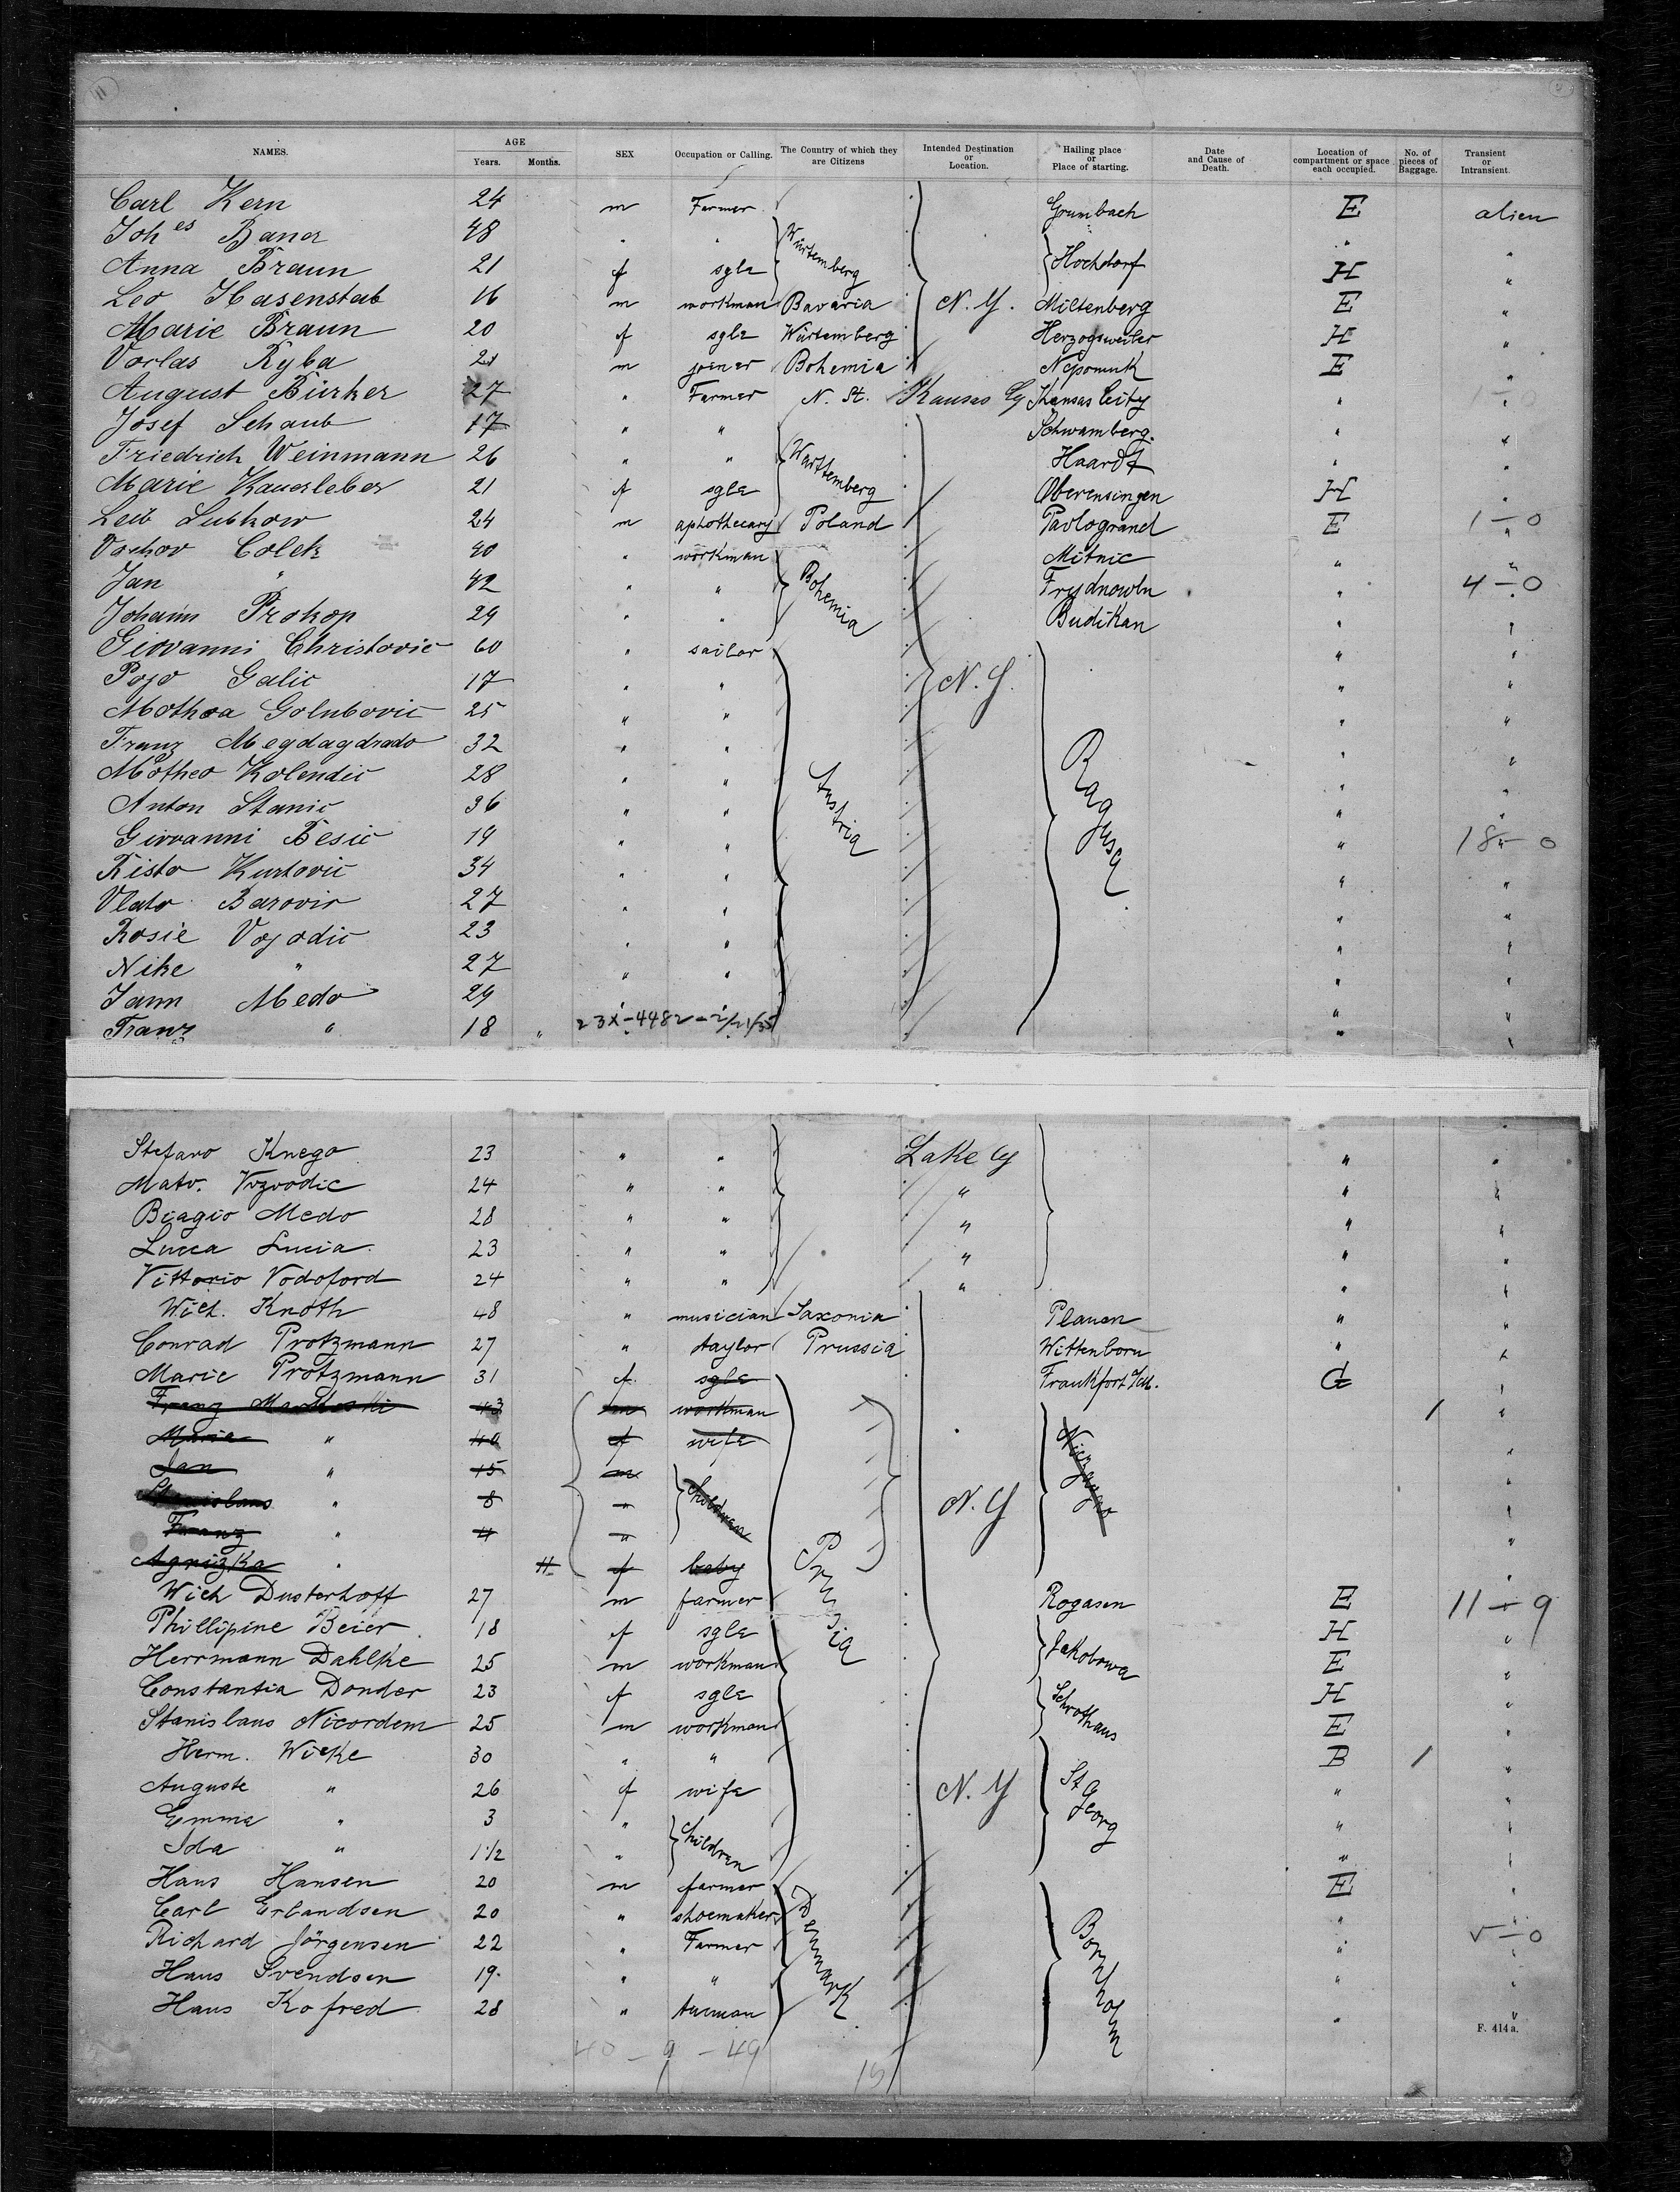 11
NAMES. AGE Years. Months. SEX Occupation or Calling. The Country of which they are Citizens Intended Destination or Location. Hailing place or Place of starting. Date and Cause of Death. Location of compartment or space each occupied. No. of pieces of Baggage. Transient or Intransient.
Carl Kern 24 m Farmer Grumbach E alien
Joh es Baner 48 " " Würtemberg Hochdorf " "
Anna Braun 21 f sgle H "
Leo Hasenstab 16 m workman Bavaria N. Y. Miltenberg E "
Marie Braun 20 f sgle Würtemberg Herzogsweiler H "
Vorlas Ryba 21 m joiner Bohemia Nepomuk E "
August Bürker 27 " Farmer N. St. Kansas Cy Kansas City " "
Josef Schaub 17 " " Schwamberg. " "
Friedrich Weinmann 26 " " Warttemberg Haardt " "
Marie Kauerleber 21 f sgle Oberensingen H "
Leib Lubkow 24 m aphothecary Poland Pavlogrand E 1-0
Vachov Colek 40 " workman Mitnic " "
Jan " 42 " " Bohemia Frydnowln " 4-0
Johann Prokop 29 " " Budikan " "
Giovanni Christovic 60 " sailor " "
Pojo Galic 17 " " N. Y. " "
Mothea Golubovic 25 " " " "
Franz Megdagdrado 32 " " " "
Motheo Kolendic 28 " " Austria Ragusa " "
Anton Stanic 36 " " " "
Giovanni Besic 19 " " " 18-0
Risto Kurtovic 34 " " " "
Vlato Barovic 27 " " " "
Rosie Vojodic 23 " " " "
Nike " 27 " " " "
Jann Medo 29 " " " "
Franz " 18 " 23X-4482-2/21/35 " "
Stefano Knego 23 " " Lake Cy " "
Mato. Vozvodic 24 " " " " "
Biagio Medo 28 " " " " "
Lucca Lucia. 23 " " " " "
Vittorio Vodoford 24 " " " " "
Wilh. Knoth 48 " musician Saxonia Plauen " "
Conrad Protzmann 27 " taylor Prussia Wittenborn " "
Marie Protzmann 31 f. sgle Frankfort a/M. G "
Franz 43 m workman 1 "
Marie " 40 f wife "
Jan " 15 m "
Stanislaus " 8 " children N. Y "
Franz " 4 " "
Agnizka " 11 f baby Prussia "
Wilh Dusterhoff 27 m farmer Rogasen E 11-9
Phillipine Beier 18 f sgle Jakobowa H "
Herrmann Dahlke 25 m workman E "
Constantia Donder 23 f sgle Schrothaus H "
Stanislaus Nicordem 25 m workman E "
Herm. Wicke 30 " " B 1 "
Auguste " 26 f wife N. Y St Georg " "
Emma " 3 " children " "
Ida " 1 1/2 " " "
Hans Hansen 20 m farmer E "
Carl Erlandsen 20 " shoemaker Denmark Bornholm " "
Richard Jörgensen 22 " Farmer " 5-0
Hans Svendsen 19. " " " "
Hans Kofred 28 " " "
F. 414 a.
40-9-49